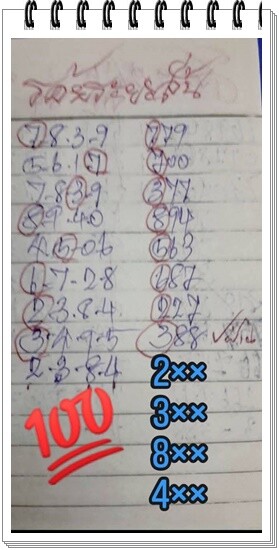 7-8-3-9 779
5-6-1-7 700
7-8-3-9 377
8-9-4-0 894
4-5-0-6 563
6-7-2-8 687
2-3-8-4 227
3-4-9-5 388
2-3-8-4 2××
100 3××
8××
4××